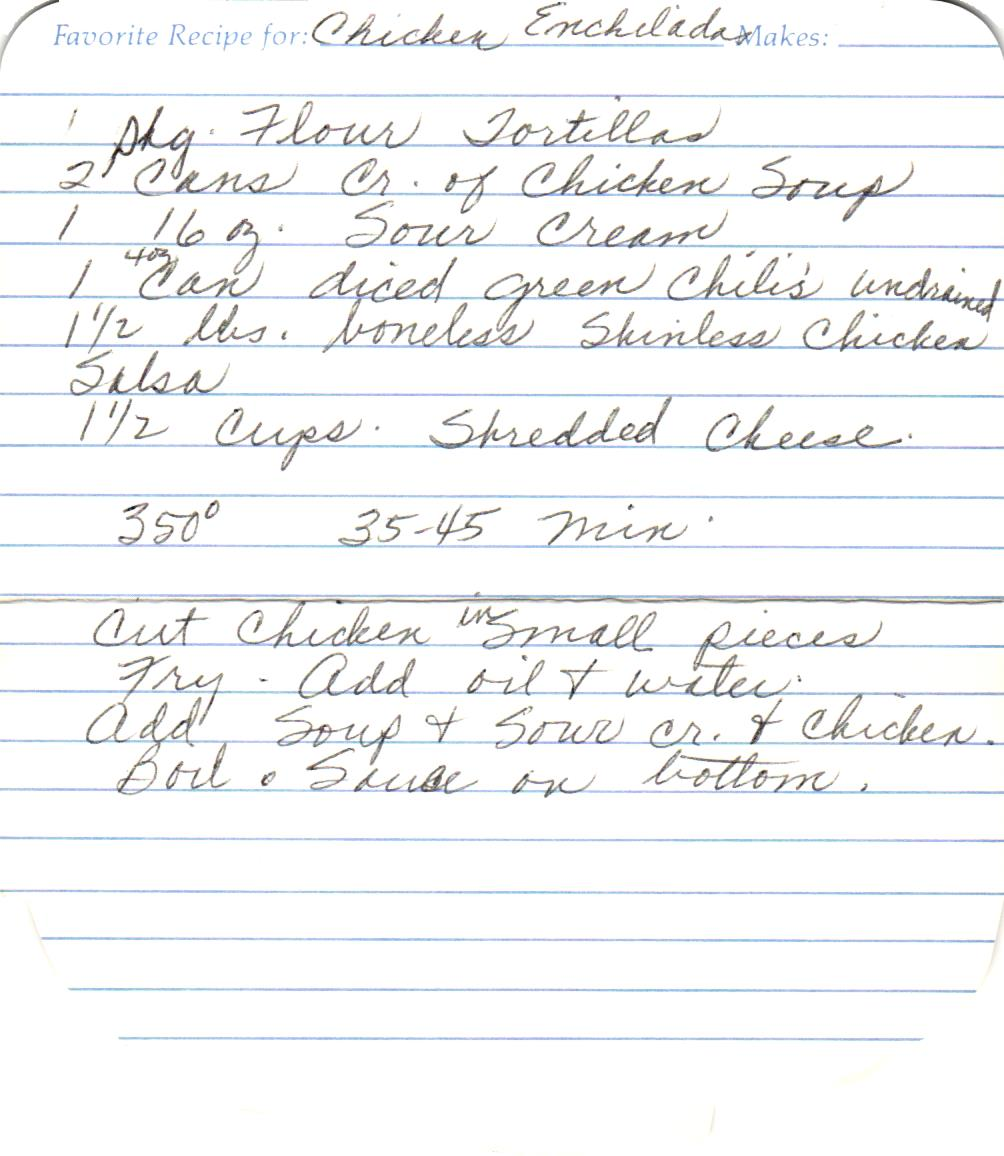 Favorite Recipe for: Chicken Enchiladas Makes:
1 pkg. Flour Tortillas
2 Cans Cr. of Chicken Soup
1 16 oz. Sour Cream
1 4oz Can diced green Chili's undrained
1 1/2 lbs. boneless Skinless Chicken
Salsa
1 1/2 Cups. Shredded Cheese.
350° 35-45 Min.
Cut Chicken in Small pieces
Fry - Add oil & water.
Add Soup & Sour cr. & Chicken.
Boil. Sauce on bottom.